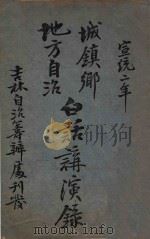 宣统二年
城鎮鄉
地方自治
白話講演錄
吉林自治籌辦處刊發